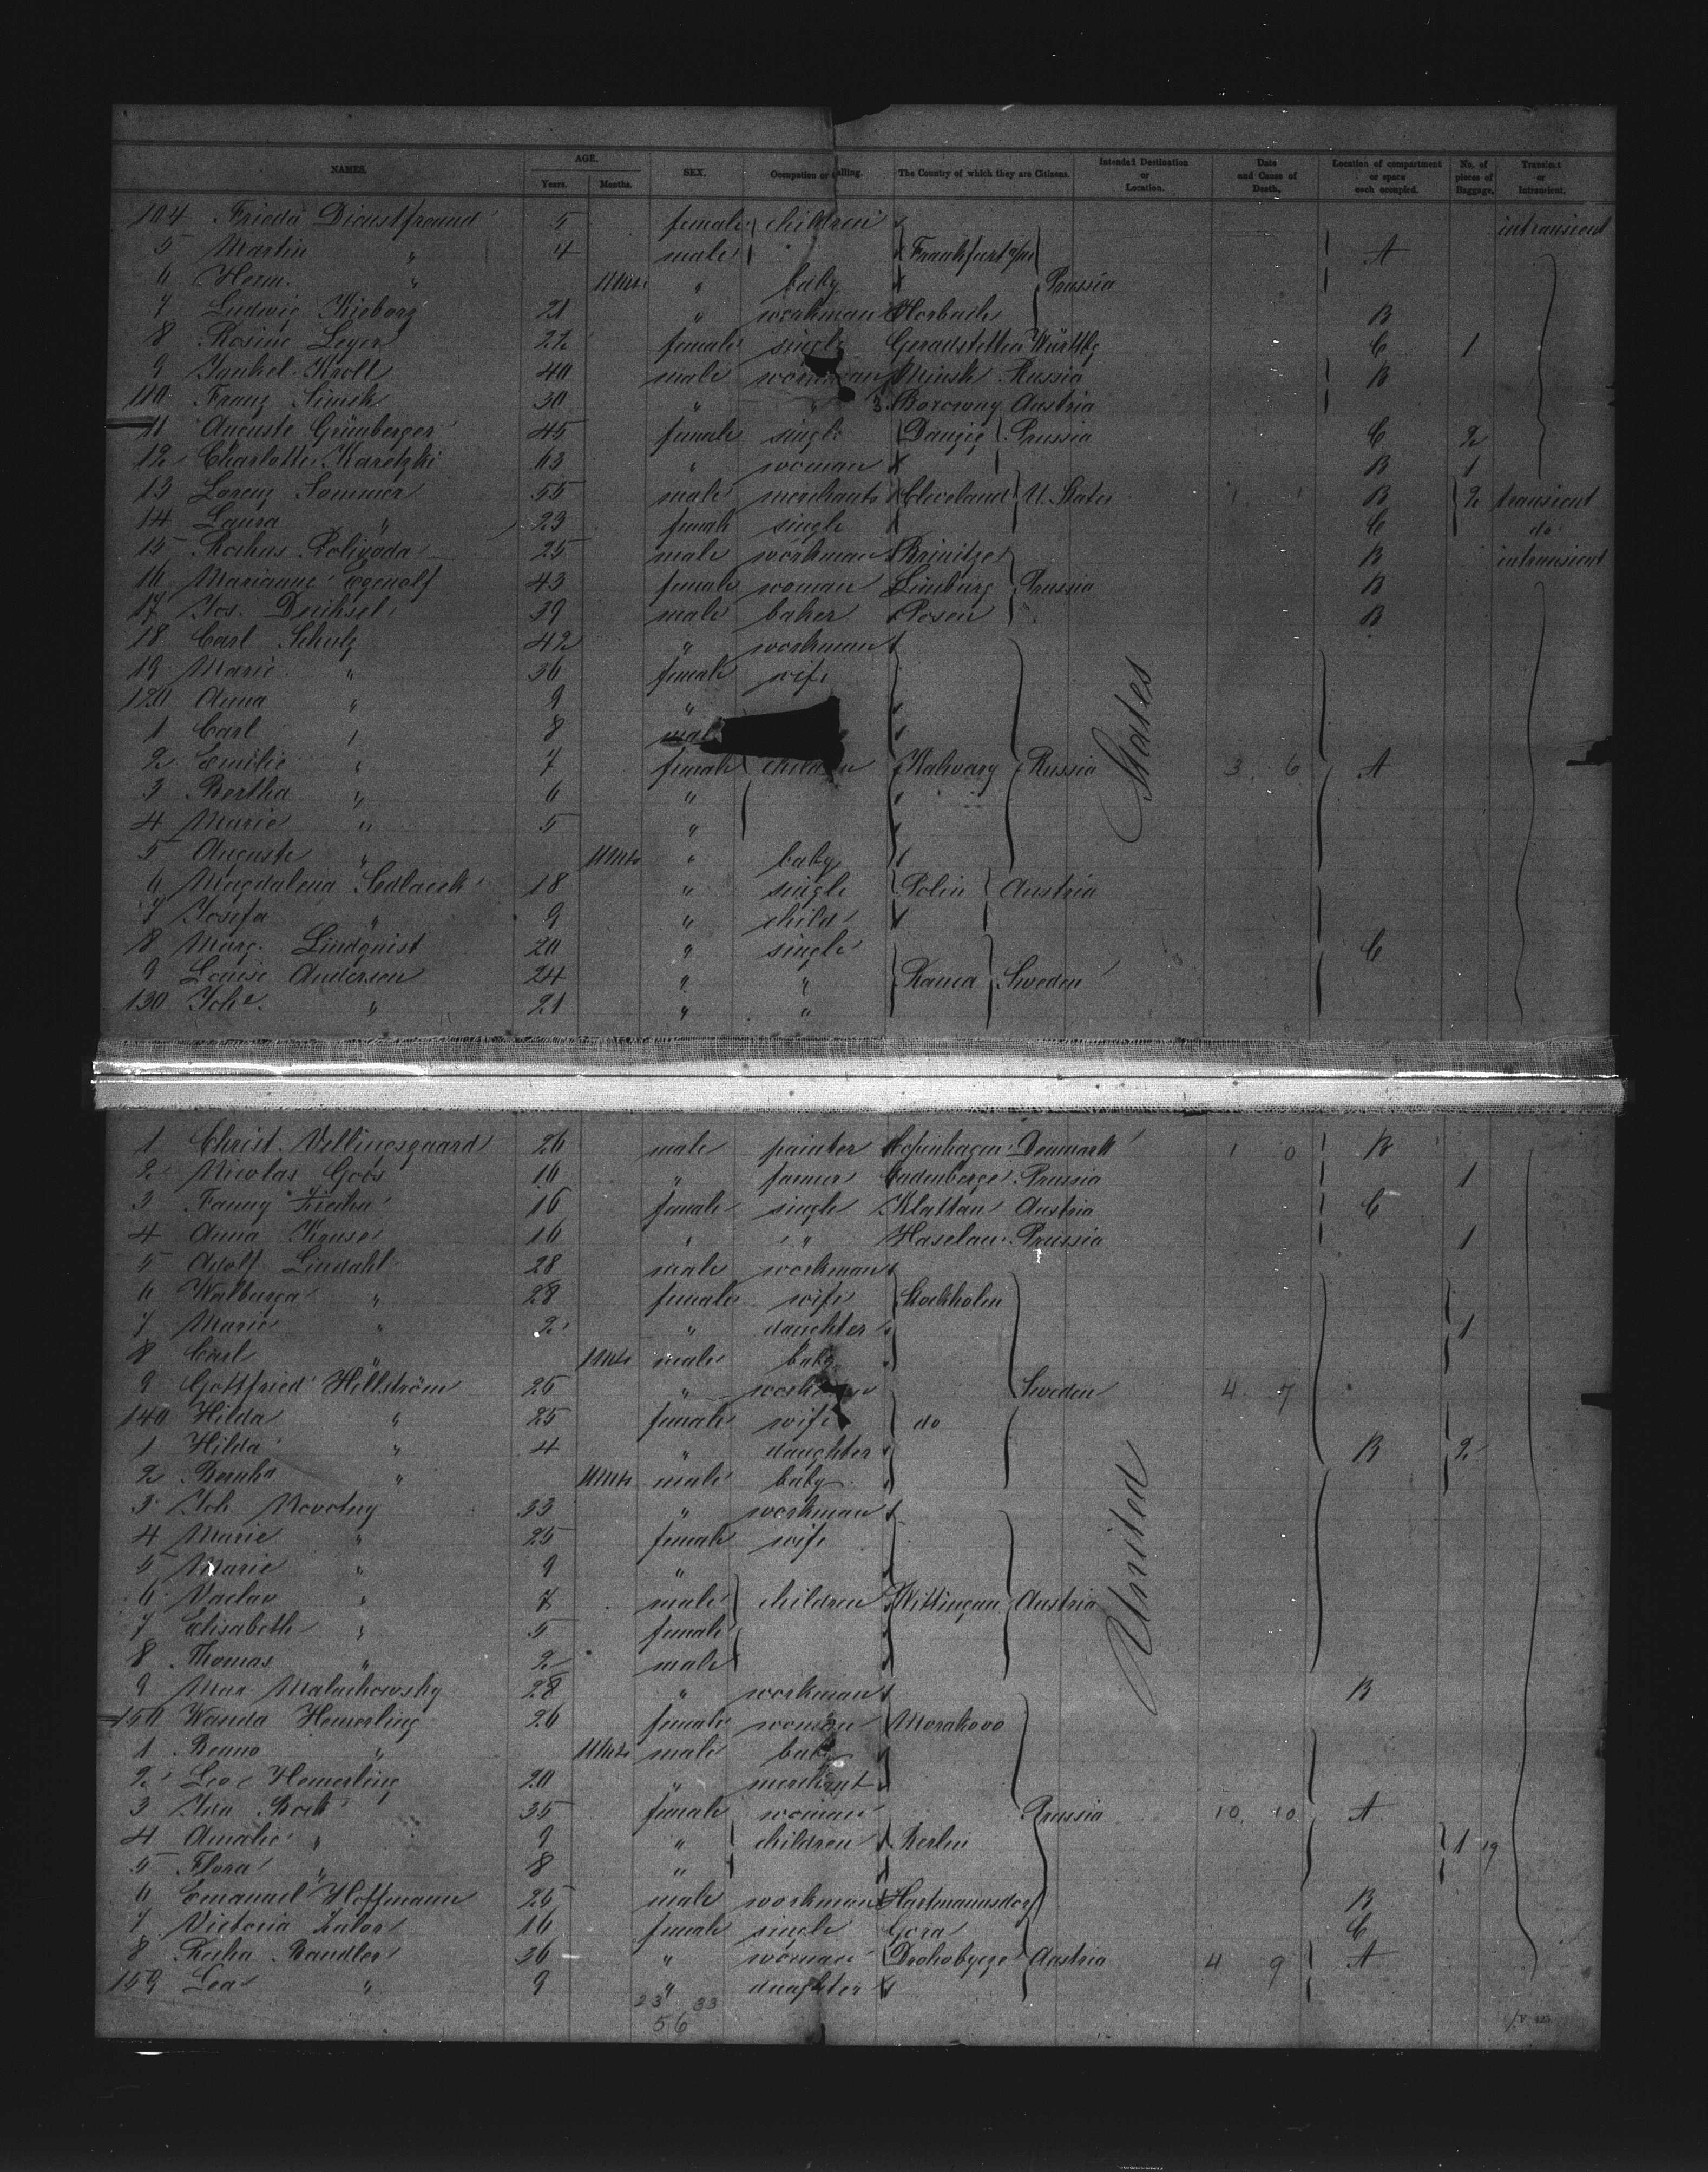 NAMES. AGE. Years. Months. SEX. Occupation or calling. The Country of which they are Citizens. Intended Destination or Location. Date and Cause of Death. Location of compartment or space each occupied. No. of pieces of Baggage. Transient or Intransient.
104 Frieda Dienstfreund 5 female children intransient
5 Martin " 4 male " Frankfurt a/m A
6 Herm. " 11 Mts. " baby Prussia
7 Ludwig 21 " workman B
8 Rosine Leger 22 female single Geradstetten Württbg C 1
9 Jankel Kroll 40 male workman Minsk Russia B
110 Franz Simek 30 " " Borowny Austria
11 Auguste Grünberger 45 female single Danzig Prussia C 2
12 Charlotte Karetzki 63 " woman B 1
13 Lorenz Sommer 55 male merchants Cleveland U. States 1 1 B 2 transient
14 Laura " 23 female single C do
15 Polivoda 25 male workman Krinitze B intransient
16 Marianne Egenolf 43 female woman Limburg Prussia B
17 Jos. Deichsel 39 male baker Posen B
18 Carl Schulz 42 " workman
19 Marie " 36 female wife
120 Anna " 9 "
1 Carl " 8 male
2 Emilie " 7 female children Kalwary Russia 3 6 A
3 Bertha " 6 "
4 Marie " 5 "
5 Auguste " 11 Mts " baby
6 Magdalena Sedlacek 18 " single Polin Austria
7 Josefa " 9 " child
8 Marg. Lindquist 20 " single C
9 Louise Anderson 24 " " Sweden
130 Johe. " 21 " "
States
1 Christ. Vellingsgaard 26 male painter Copenhagen Denmark 1 0 B
2 Nicolas Goos 16 " farmer Cadenberge Prussia 1
3 Fanny 16 female single Klattau Austria C
4 Anna Kruse 16 " " Haselau Prussia 1
5 Adolf Lindahl 28 male workman
6 Walburga " 28 female wife Stockholm
7 Marie " 2 " daughter 1
8 Carl " 1 Mts male baby
9 Gottfried Hellström 25 " workman Sweden 4 7
140 Hilda " 25 female wife do
1 Hilda " 4 " daughter B 2
2 Bernhd " 11 Mts male baby
3 Joh. Novotny 33 " workman
4 Marie " 25 female wife
5 Marie " 9 "
6 Vaclav " 7 male children Wittingau Austria
7 Elisabeth " 5 female
8 Thomas " 2 male
9 Max Malachowsky 28 " workman B
150 Wanda Hemerling 26 female woman Morakovo
1 Benno " 11 Mts male baby
2 Leo Hemerling 20 " merchant
3 Ida 35 female woman Prussia 10 10 A
4 Amalie " 9 " children Berlin 1 19
5 Flora " 8 "
6 Emanuel Hoffmann 25 male workman Hartmannsdorf B
7 Victoria 16 female single Gora C
8 Bandler 36 " woman Drohobycze Austria 4 9 A
159 Lea " 9 " daughter
United
23 33
56